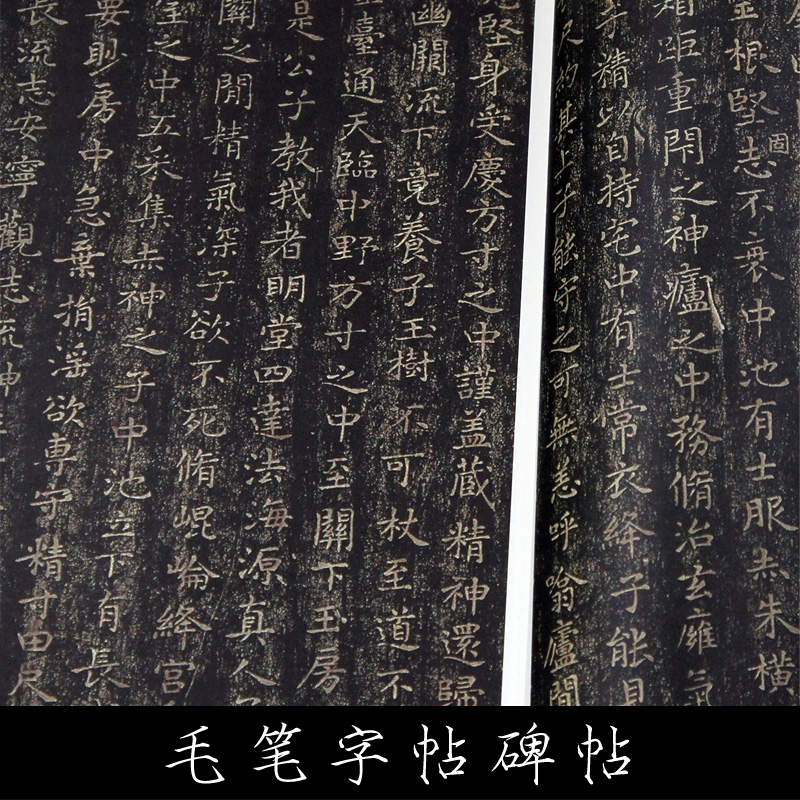 金根堅志不衰中池有士服赤朱橫
固
相距重閇之神廬之中務脩治玄廱氣
子精以自持宅中有士常衣絳子能見
尺約其上子能守之可無恙呼噏廬間
堅身受慶方寸之中謹盖蔵精神還歸
幽關流下竟養子玉樹不可杖至道不
臺通天臨中野方寸之中至關下玉房
是公子教我者明堂四達法海源真人
關之閒精氣深子欲不死脩崐崘絳宮
室之中五采集赤神之子中池立下有長
要眇房中急棄捐滛欲專守精寸田尺
長流志安寧觀志流神
毛笔字帖碑帖